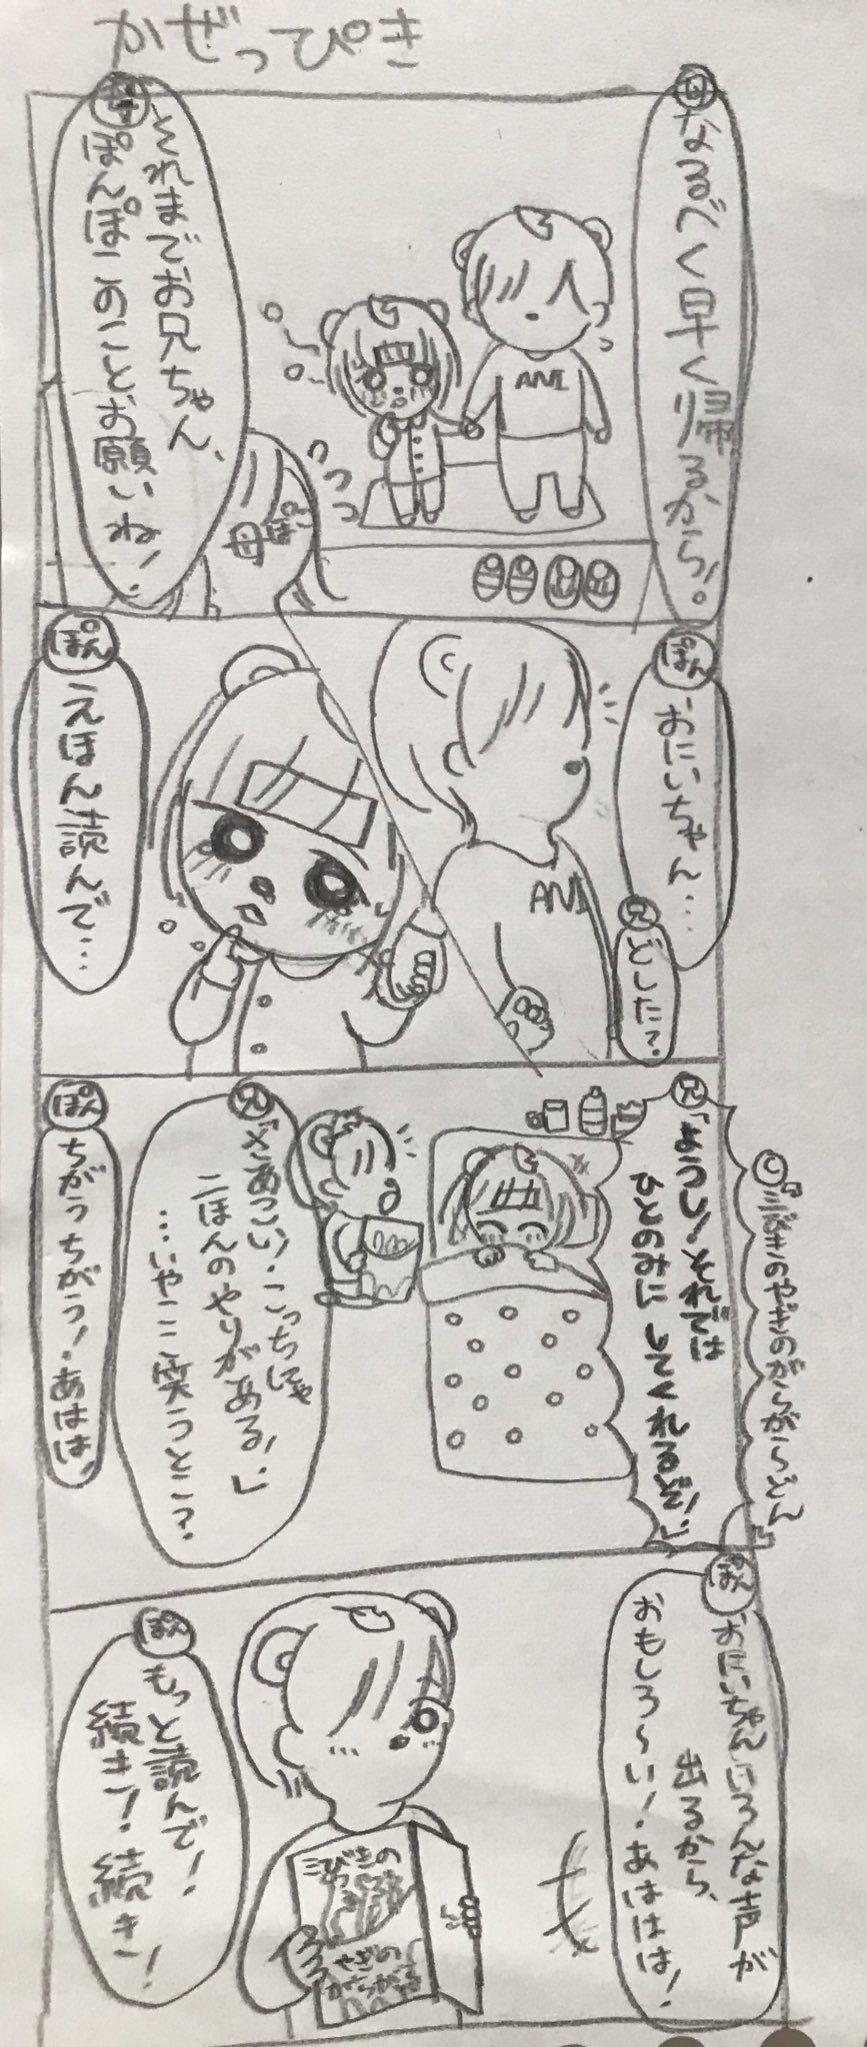 かぜっぴき
母
なるべく早く帰るから!
母
それまでお兄ちゃん、
ぽんぽこのことお願いね!
ANI
母ぽこ
ぽん
おにいちゃん…
兄
どした?
ANI
ぽん
えほん読んで…
©『三びきのやぎのがらがらどん』
兄
「ようし!それでは
ひとのみにしてくれるぞ!」
兄
「さあこい!こっちにゃ
二ほんのやりがある!」
…いやここ笑うとこ?
ぽん
ちがうちがう!あはは、
ぽん
おにいちゃんいろんな声が
出るから、
おもしろ〜い!あははは!
三びきの
やぎの
がらがら
ぽん
もっと読んで!
続き!続き!